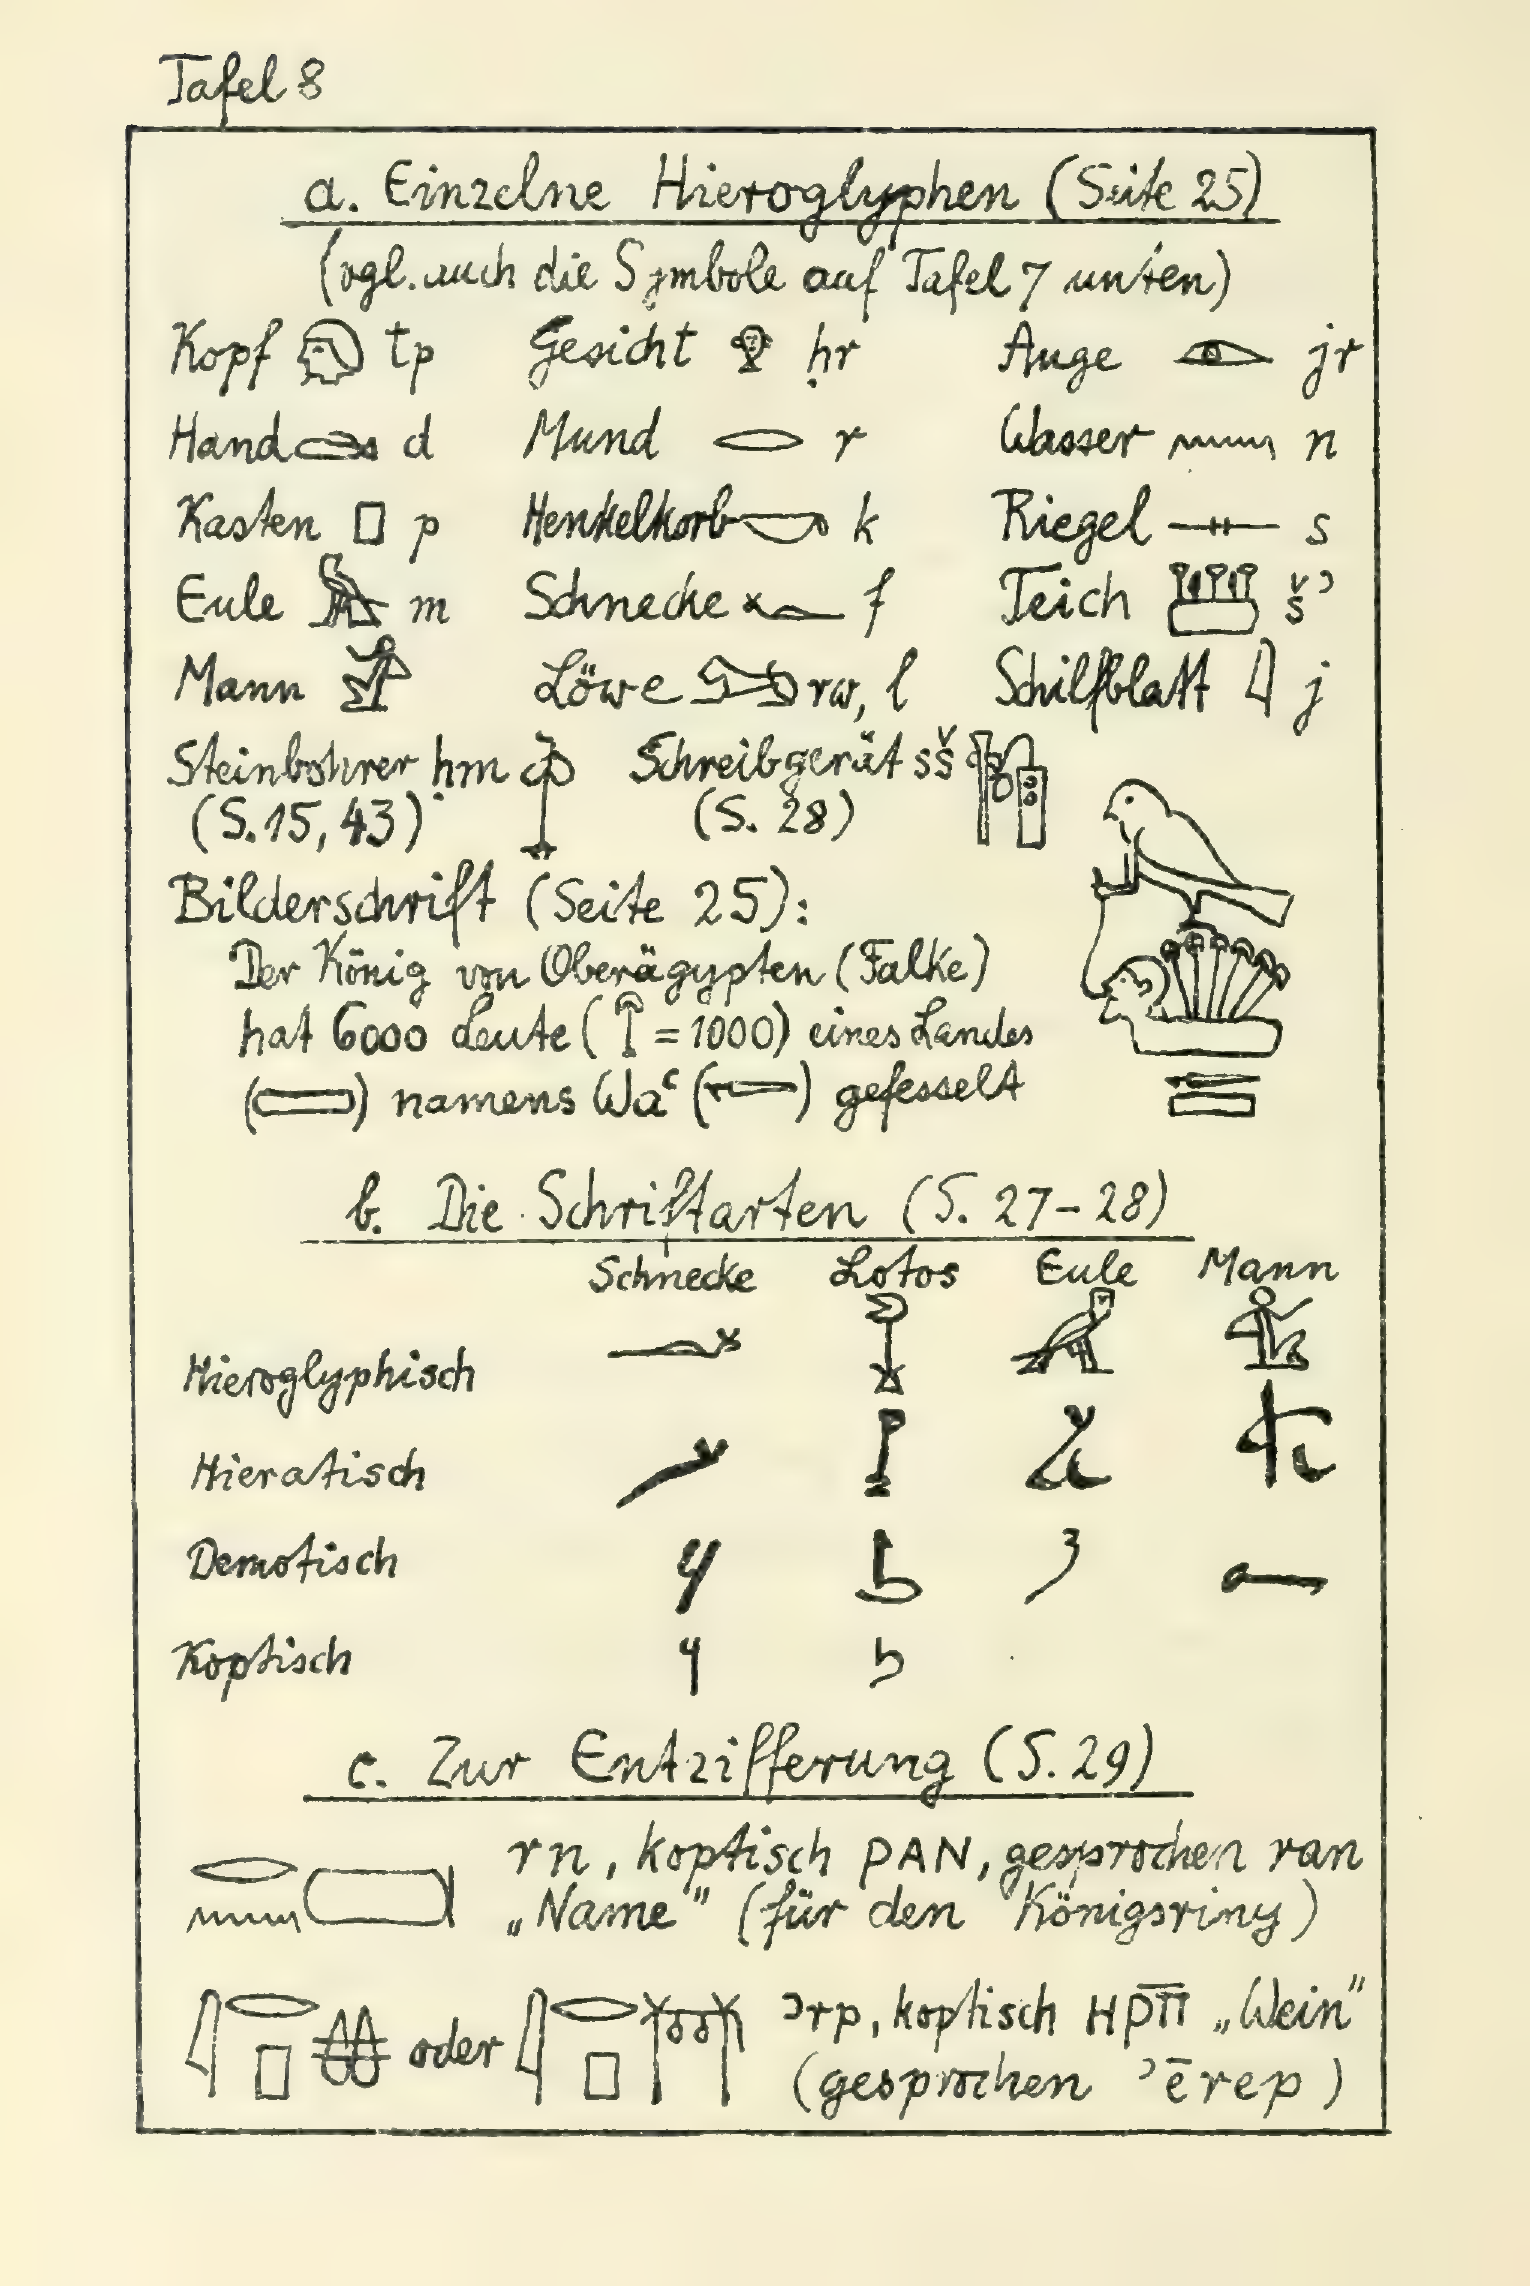 Tafel 8
a. Einzelne Hieroglyphen (Seite 25)
(vgl. auch die Symbole auf Tafel 7 unten)
Kopf tp Gesicht ḥr Auge jr
Hand d Mund r Wasser n
Kasten p Henkelkorb k Riegel s
Eule m Schnecke f Teich šꜣ
Mann Löwe rw, l Schilfblatt j
Steinbohrer ḥm Schreibgerät sš
(S. 15, 43) (S. 28)
Bilderschrift (Seite 25):
Der König von Oberägypten (Falke)
hat 6000 Leute ( = 1000) eines Landes
( ) namens Waᶜ ( ) gefesselt
b. Die Schriftarten (S. 27-28)
Schnecke Lotos Eule Mann
Hieroglyphisch
Hieratisch
Demotisch
Koptisch ϥ ϧ
c. Zur Entzifferung (S. 29)
rn, koptisch ⲢⲀⲚ, gesprochen ran
„Name" (für den Königsring)
oder ꜣrp, koptisch ⲎⲢⲠ̅ „Wein"
(gesprochen ʾērep)